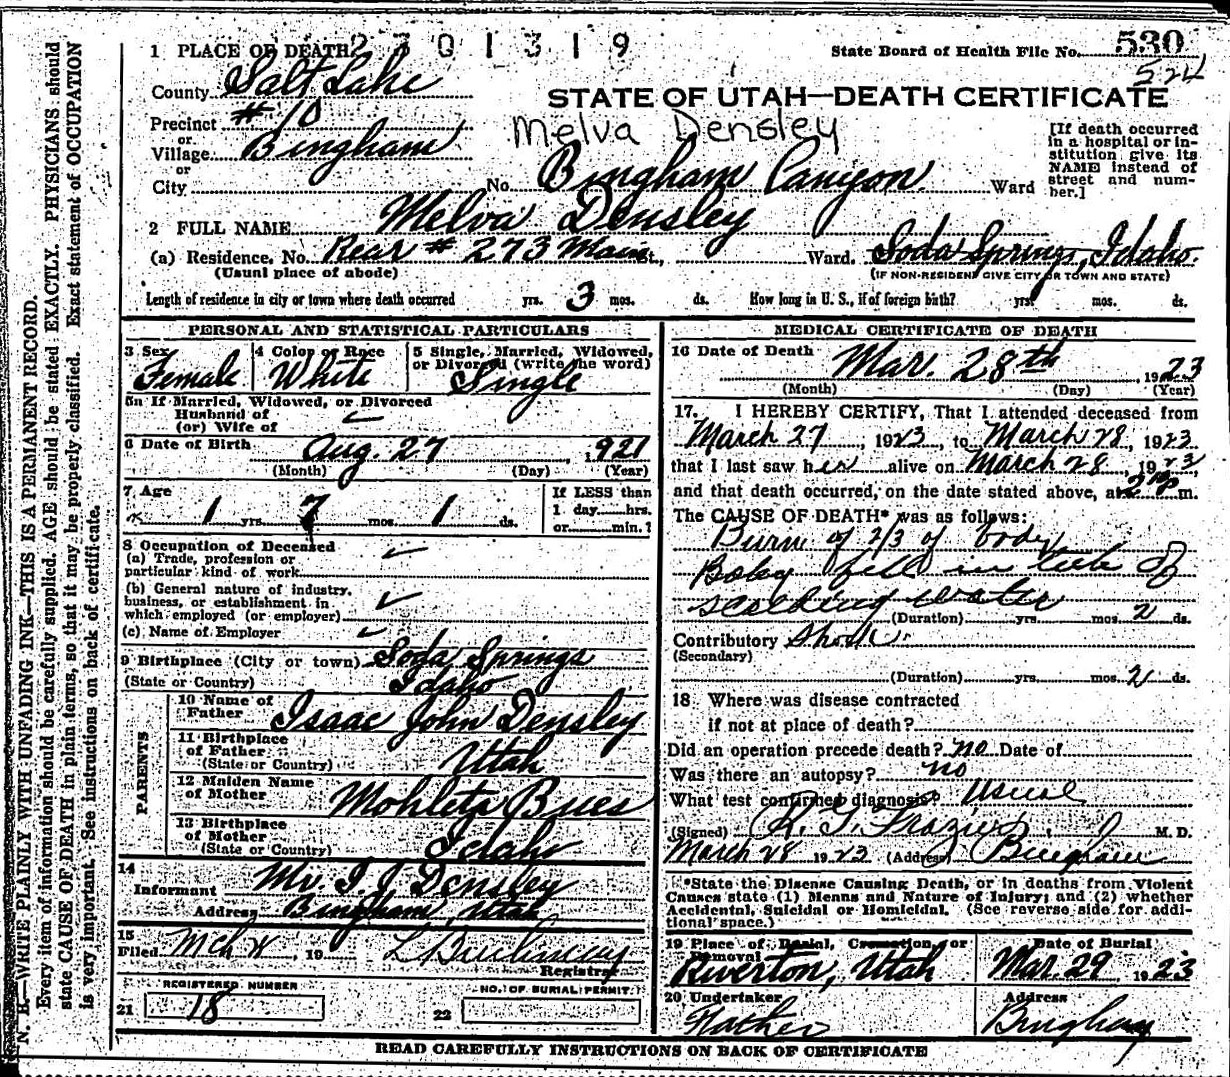 1 PLACE OF DEATH 2301319
State Board of Health File No. 530
524
County Salt Lake
STATE OF UTAH—DEATH CERTIFICATE
Precinct #10
or
Melva Densley
Village Bingham
or
City No. Bingham Canyon Ward
[If death occurred
in a hospital or in-
stitution give its
NAME instead of
street and num-
ber.]
2 FULL NAME Melva Densley
(a) Residence, No. Rear # 273 Main St., Ward. Soda Springs, Idaho.
(Usual place of abode) (IF NON-RESIDENT GIVE CITY OR TOWN AND STATE)
Length of residence in city or town where death occurred yrs. 3 mos. ds. How long in U. S., if of foreign birth? yrs. mos. ds.
PERSONAL AND STATISTICAL PARTICULARS
3 Sex Female
4 Color or Race White
5 Single, Married, Widowed,
or Divorced (write the word)
Single
5a If Married, Widowed, or Divorced
Husband of
(or) Wife of
6 Date of Birth Aug. 27, 1921
(Month) (Day) (Year)
7 Age
1 yrs. 7 mos. 1 ds.
If LESS than
1 day......hrs.
or......min.?
8 Occupation of Deceased
(a) Trade, profession or
particular kind of work
(b) General nature of industry,
business, or establishment in
which employed (or employer)
(c) Name of Employer
9 Birthplace (City or town) Soda Springs
(State or Country) Idaho
PARENTS
10 Name of
Father Isaac John Densley
11 Birthplace
of Father
(State or Country) Utah
12 Maiden Name
of Mother Mohleta
13 Birthplace
of Mother
(State or Country) Idaho
14
Informant Mr. I. J. Densley
Address Bingham Utah
15
Filed Mch 19
Registrar
REGISTERED NUMBER
21 18
NO. OF BURIAL PERMIT
22
MEDICAL CERTIFICATE OF DEATH
16 Date of Death Mar. 28th 1923
(Month) (Day) (Year)
17. I HEREBY CERTIFY, That I attended deceased from
March 27, 1923, to March 28, 1923
that I last saw her alive on March 28, 1923
and that death occurred, on the date stated above, at 2 p m.
The CAUSE OF DEATH* was as follows:
Burn of 2/3 of body
Baby fell in tub of
scalding water
(Duration) yrs. mos. 2 ds.
Contributory Shock.
(Secondary)
(Duration) yrs. mos. 2 ds.
18 Where was disease contracted
if not at place of death?
Did an operation precede death? no Date of
Was there an autopsy? no
What test confirmed diagnosis? Usual
(Signed) R. G. Frazier, M. D.
March 28 1923 (Address) Bingham
*State the Disease Causing Death, or in deaths from Violent
Causes state (1) Means and Nature of Injury; and (2) whether
Accidental, Suicidal or Homicidal. (See reverse side for addi-
tional space.)
19 Place of Burial, Cremation, or
Removal
Riverton, Utah
Date of Burial
Mar. 29 1923
20 Undertaker
Father
Address
Bingham
READ CAREFULLY INSTRUCTIONS ON BACK OF CERTIFICATE
N. B.—WRITE PLAINLY WITH UNFADING INK—THIS IS A PERMANENT RECORD.
Every item of information should be carefully supplied. AGE should be stated EXACTLY. PHYSICIANS should
state CAUSE OF DEATH in plain terms, so that it may be properly classified. Exact statement of OCCUPATION
is very important. See instructions on back of certificate.